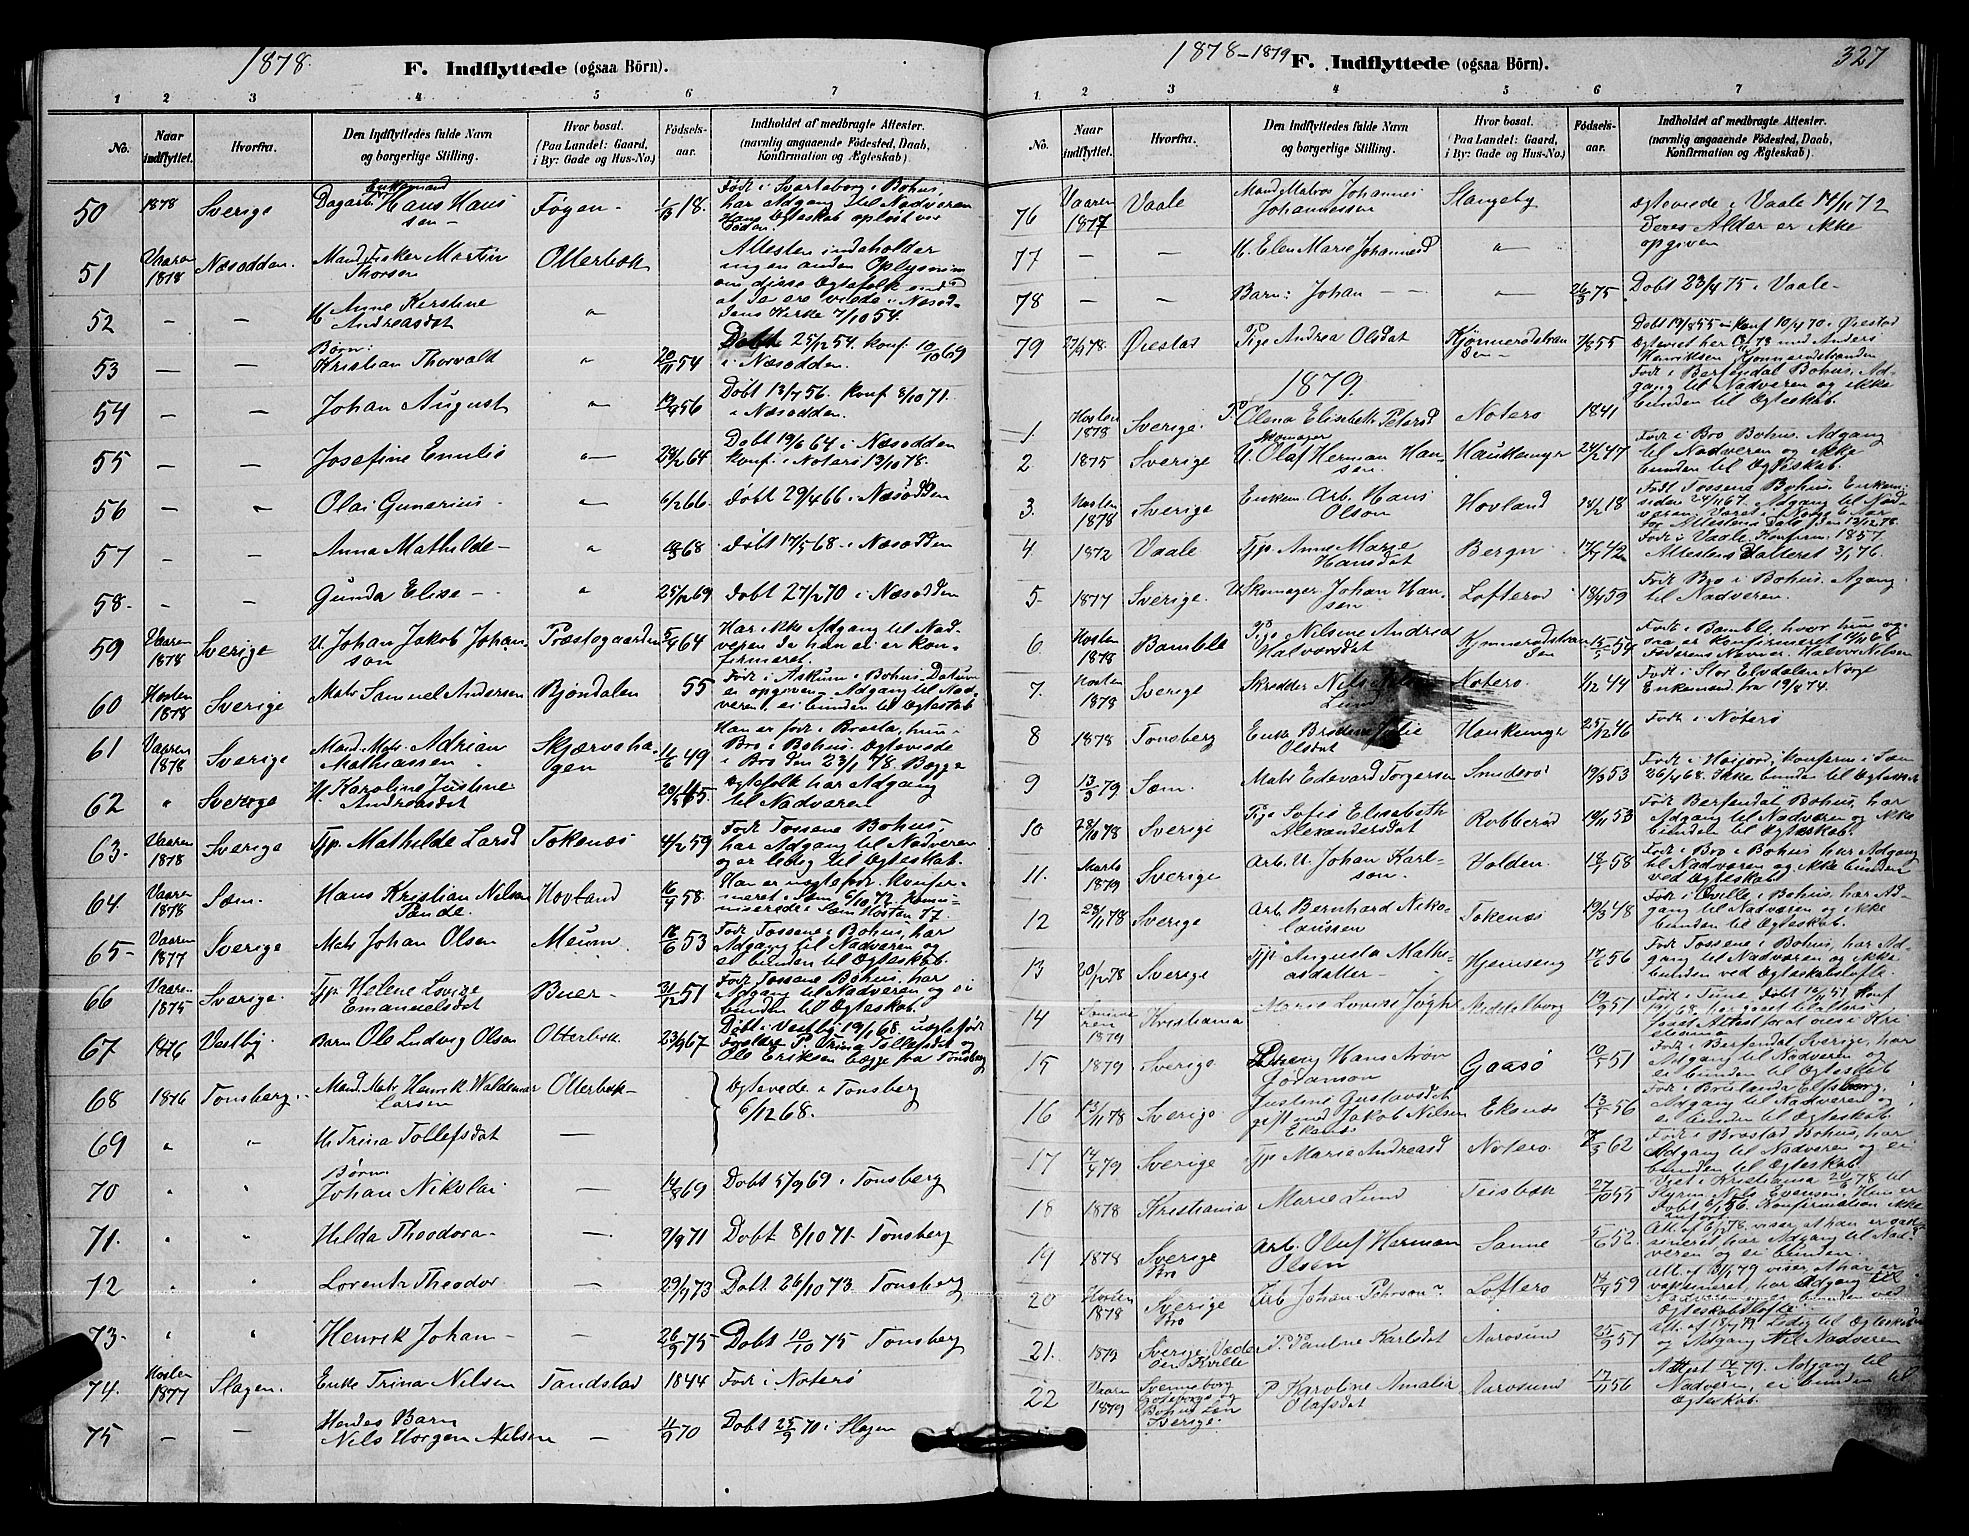 1878.
F. Indflyttede (ogsaa Börn).
1 2 3 4 5 6 7
No. Naar indflyttet. Hvorfra. Den Indflyttedes fulde Navn og borgerlige Stilling. Hvor bosat. (Paa Landet: Gaard, i By: Gade og Hus-No.) Fødsels-aar. Indholdet af medbragte Attester. (navnlig angaaende Fødested, Daab, Konfirmation og Ægteskab).
50 1878 Sverige Dagarb. Enkemand Hans Hansen Føyen 18. Født i Svarteborg i Bohus, har Adgang til Nadveren Hans Ægteskab opløst ved Døden.
51 Vaaren 1878 Næsodden. Mand Fisker Martin Thorsen Otterbæk Attesten indeholder ingen anden Oplysning om disse Ægtefolk end at de ere viede i Næsoddens Kirke 7/10 54.
52 — — H. Anne Kirstine Andreasdat "
53 — — Børn: Kristian Thorvald " 20/11 54 Døbt 25/2 54. Konf. 10/10 69 i Næsodden.
54 — — Johan August " 56 Døbt 13/7 56. Konf 8/10 71. i Næsodden.
55 — — Josefine Emilie " 29/2 64 Døbt 19/6 64 i Næsodden Konf. i Nøterø 13/10 78.
56 — " Olai Gunerius " 6/2 66 Døbt 29/4 66 i Næsodden
57 — — Anna Mathilde — " 68 Døbt 17/5 68 i Næsodden
58. — — Gunda Elise — " 25/12 69 Døbt 27/2 70 i Næsodden
59 Vaaren 1878 Sverige U. Johan Jakob Johanson Præstegaarden 64 Har ikke Adgang til Nadveren da han ei er konfirmeret.
60 Høsten 1878 Sverige Matr Samuel Andersen Bjøndalen 55 Født i Askum i Bohus. Datum ei opgiven. Adgang til Nadveren, ei bunden til Ægteskab
61 Vaaren 1878 Sverige Mand. Matr. Adrian Mathiassen Skjærvehagen 49 Han er født i Brasta, hun i Bro i Bohus. Ægteviede i Bro den 23/1 78. Begge Ægtefolk har Adgang til Nadveren
62 " Sverige H. Karoline Justine Andreasdat 55.
63. Vaaren 1878 Sverige Tjp. Mathilde Larsd Tokenæs 4/2 59 Født Tossene Bohus, har Adgang til Nadveren og er ledig til Ægteskab.
64 Vaaren 1878 Sæm. Hans Kristian Nilsen Hovland 16/9 58. Han er uægtefød. Konfirmeret i Sæm 6/10 72. kommuniserede i Sæm Høsten 77.
65 Vaaren 1877 Sverige Matr Johan Olsen Meum 16/6 53 Født Tossene i Bohus, har Adgang til Nadveren og ei bunden til Ægteskab.
66 Vaaren 1875 Sverige. Tjp. Helene Lovise Emanuelsdat Buer 31/12 51 Født Tossene Bohus, har Adgang til Nadveren og ei bunden til Ægteskab.
67 1876 Vestby. Barn Ole Ludvig Olsen Otterbæk 23/9 67 Døbt i Vestby 19/1 68. uægtefødt Forældre P. Trina Tollefsdat og Ole Eriksen begge fra Tønsberg
68 1876 Tønsberg. Mand. Matr Henrik Waldemar Larsen Otterbæk Ægteviede i Tønsberg 6/12 68.
69 " " H. Trina Tollefsdat —
70 " " Børn Johan Nikolai — 14/8 69 Døbt 5/9 69 i Tønsberg
71. " " Hilda Theodora — — 9/9 71 Døbt 8/10 71. Tønsberg
72 " " Lorentz Theodor — 29/9 73 Døbt 26/10 73. Tønsberg
73 " " Henrik Johan — — 26/9 75 Døbt 10/10 75 Tønsberg
74. Høsten 1877 Slagen. Enke Trina Nilsen Tandstad 1844 Født i Nøterø
75 — — Hendes Barn Nils Horgen Nilsen — 70 Døbt 25/9 70 i Slagen
1878-1879
F. Indflyttede (ogsaa Börn).
327
1. 2 3 4 5 6 7
No. Naar indflyttet. Hvorfra. Den Indflyttedes fulde Navn og borgerlige Stilling. Hvor bosat. (Paa Landet: Gaard, i By: Gade og Hus-No.) Fødsels-aar. Indholdet af medbragte Attester. (navnlig angaaende Fødested, Daab, Konfirmation og Ægteskab).
76 Vaaren 1877 Vaale Mand Matros Johannes Johannessen Slangeby Ægteviede i Vaale 14/11 72 Deres Alder er ikke opgiven
77 — — H. Elen Marie Johannesd "
78 — — Barn: Johan — — " 26/3 75 Døbt 23/4 75 i Vaale
79 27/9 78 Ørestad Pige Andrea Olsdat Kjønnerødstranden 7/8 55 Døbt 19/8 55 Konf 10/4 70 i Ørestad Ægteviet her 78 med Anders Henriksen Kjønnerødstranden
1879.
1. Høsten 1878 Sverige. P. Elena Elisabeth Petersd Nøterø 1841 Født i Berfendal Bohus, Adgang til Nadveren og ikke bunden til Ægteskab.
2 1875 Sverige U. Skomager Olaf Herman Hansen Haukemyr 24/2 47 Født i Bro Bohus. Adgang til Nadveren og ikke bunden til Ægteskab.
3. Høsten 1878 Sverige Enkem. Arb. Hans Olson Hovland 24/2 18 Født Tossene Bohus. Enkem. siden 24/11 67. Adgang til Nadveren.
4. 1872 Vaale Tjp. Anne Marie Hansdat Bergan 42 Født i Vaale, Konfirm. 1857. Attesten dateret 3/1 76.
5 1877 Sverige. U. Skomager Johan Hansen Lofterød 18/4 59 Født Bro i Bohus. Agang til Nadveren.
6. Høsten 1878 Bamble Pige Nilsine Andrea Halvorsdat Kjønnerødstranden 15/5 54 Født i Bamble, hvor hun ogsaa er konfirmeret Faderens Navn: Halvor Nilsen
7. Høsten 1878 Sverige Skrædder Nils Lund Nøterø. 1/12 44 Født i Stor Elvdalen Norge Enkemand fra 19/8 74.
8 1878 Tønsberg Enke Olsdat Haukemyr 25/12 46 Født i Nøterø
9 13/3 79 Sæm. Matr Edevard Torgersen Smiderø 19/3 53 Født i Høijord, Konfirm. i Sæm 26/4 68. Ikke bunden til Ægteskab
10 28/10 78 Sverige Pige Sofie Elisabeth Alexandersdat Robberød 19/11 53 Født Berfendal Bohus, har Adgang til Nadveren og ikke bunden til Ægteskab.
11. Marts 1879 Sverige Arb. U. Johan Karlson. Holden 18/5 58 Født i Bro i Bohus har Adgang til Nadveren og ikke bunden ved Ægteskab
12 28/11 78 Sverige Arb. Bernhard Nikolaussen Tokenæs 19/3 48 Født i Qville i Bohus, har Adgang til Nadveren og ikke bunden til Ægteskab.
13 20/12 78 Sverige Tjp. Augusta Mathiasdatter Hjemseng 17/6 56 Født Tossene i Bohus, har Adgang til Nadveren og ikke bunden ved Ægteskabsløfte.
14 Sommeren 1879 Kristiania Marie Lovise Middelborg 51 Født i Tune.
15 1879 Sverige Dreng Hans Aron Johanson Gaasø 51 Født i Berfendal Sverige, har Adgang til Nadveren og ei bunden til Ægteskab
16 78 Sverige. Justine Gustavsdat gift med Jakob Nilsen Ekenæs Ekenæs 13/5 56 Adgang til Nadveren og ei bunden til Ægteskab
17 14/4 79 Sverige Tjp Marie Andreasd Nøterø. 62 Født i Brastad Bohus, har Adgang til Nadveren og ei bunden til Ægteskab.
18 1878 Kristiania Marie Lund Teisbæk 27/10 55 Viet i Kristiania 78 til Styrm. Nils Evensen.
19 1878 Sverige Bro Arb. Oluf Herman Olsen Sanne 52 viser, at han er vaksineret har Adgang til Nadveren og ei bunden.
20 Høsten 1878 Sverige Bro Arb Johan Pehrson Lofterø 59 viser, at han er vaksineret, har Adgang til Nadveren og ei bunden ved Ægteskabsløfte.
21. 1879 Sverige P. Pauline Karlsdat Aarøsund 25/9 57 Att. af 18/4 79 Ledig til Ægteskab og Adgang til Nadveren
22 Vaaren 1879 Svenneborg Gøteborgs og Bohus Len Sverige. P Karoline Amalie Olafsdat Aarøsund 17/11 56 Attest 79. Adgang til Nadveren, ei bunden til Ægteskab.